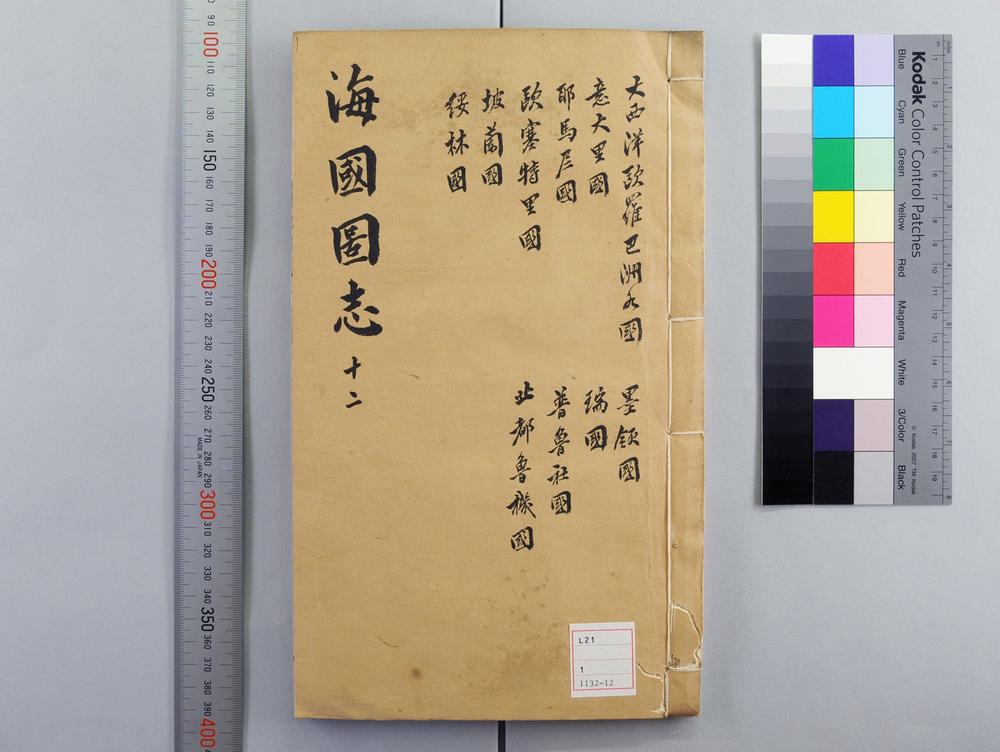 海國圖志 十二
大西洋歐羅巴洲各國
意大里國
耶馬尼國
歐塞特里國
坡蘭國
綏林國
墨領國
瑞國
普魯社國
北都魯機國
L21
1
1132-12
Kodak Color Control Patches
Blue
Cyan
Green
Yellow
Red
Magenta
White
3/Color
Black
© Kodak, 2007 TM: Kodak
MADE IN JAPAN
90
100
110
120
130
140
150
160
170
180
190
200
210
220
230
240
250
260
270
280
290
300
310
320
330
340
350
360
370
380
390
400